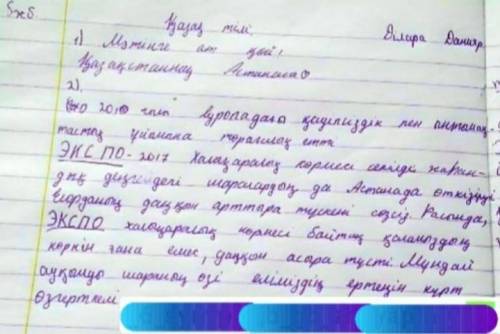 Қазақ тілі. Ділара Данияр
1) Мәтінге ат қой!
Қазақстанның Астанасы
2).
2010 Еуропадағы қауіпсіздік пен ынтымақ
тастық ұйымына төрағалық етті
ЭКСПО-2017 Халықаралық көрмесі секілді жаһан-
дық деңгейдегі шаралардың да Астанада өткізілуі
Елорданың даңқын арттыра түскені сөзсіз. Расында,
ЭКСПО халықаралық көрмесі байтақ қаламыздың
көркін ғана емес, даңқын асыра түсті. Мұндай
ауқымды шараның өзі еліміздің ертеңін күрт
өзгертпелі